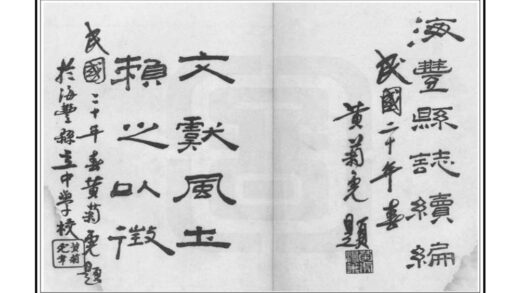 海豐縣誌續編
民國二十年春
黃菊題
文獻風土
賴之以徵
民國二十年春黃菊題
於海豐縣立中學校